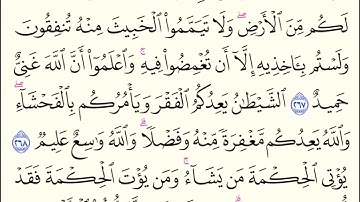 لَكُم مِّنَ ٱلْأَرْضِ ۖ وَلَا تَيَمَّمُوا۟ ٱلْخَبِيثَ مِنْهُ تُنفِقُونَ
وَلَسْتُم بِـَٔاخِذِيهِ إِلَّآ أَن تُغْمِضُوا۟ فِيهِ ۚ وَٱعْلَمُوٓا۟ أَنَّ ٱللَّهَ غَنِىٌّ
حَمِيدٌ ٢٦٧ ٱلشَّيْطَٰنُ يَعِدُكُمُ ٱلْفَقْرَ وَيَأْمُرُكُم بِٱلْفَحْشَآءِ ۖ
وَٱللَّهُ يَعِدُكُم مَّغْفِرَةً مِّنْهُ وَفَضْلًا ۗ وَٱللَّهُ وَٰسِعٌ عَلِيمٌ ٢٦٨
يُؤْتِى ٱلْحِكْمَةَ مَن يَشَآءُ ۚ وَمَن يُؤْتَ ٱلْحِكْمَةَ فَقَدْ